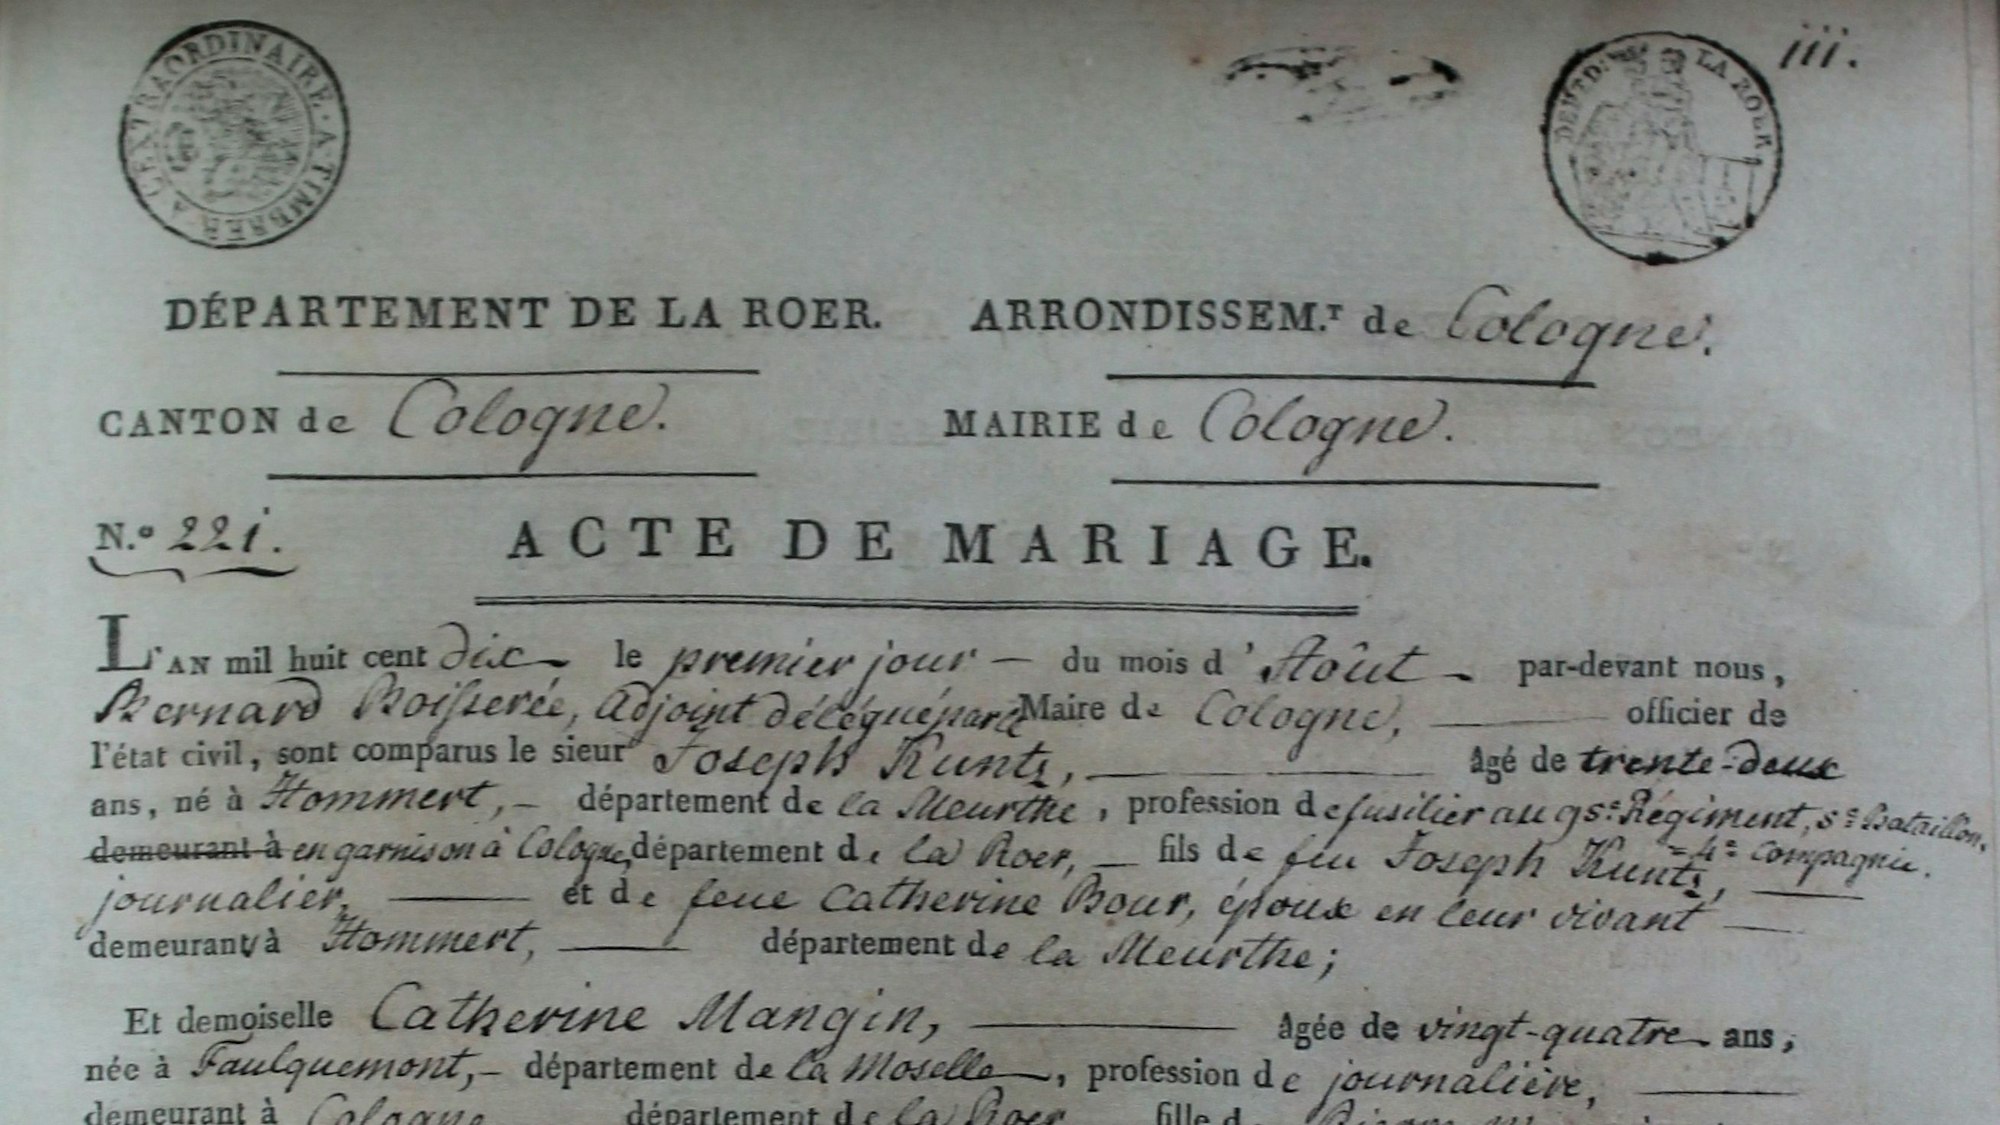 A L'EXTRAORDINAIRE. A TIMBRER
DEP.T D: LA ROER
iii.
DÉPARTEMENT DE LA ROER. ARRONDISSEM.T de Cologne.
CANTON de Cologne. MAIRIE de Cologne.
N.o 221. ACTE DE MARIAGE.
L'AN mil huit cent dix le premier jour — du mois d'Août — par-devant nous,
Bernard Boisserée, Adjoint délégué par le Maire de Cologne, — officier de
l'état civil, sont comparus le sieur Joseph Kuntz, — âgé de trente-deux
ans, né à Hommert, — département de la Meurthe, profession de fusilier au 95e Régiment, 5e Bataillon,
= 4e Compagnie.
demeurant à en garnison à Cologne, département de la Roer, — fils de feu Joseph Kuntz, —
journalier, — et de feue Catherine Bour, époux en leur vivant —
demeurant à Hommert, — département de la Meurthe;
Et demoiselle Catherine Mangin, — âgée de vingt-quatre ans,
née à Faulquemont, — département de la Moselle —, profession de journalière, —
demeurant à Cologne département de la Roer fille d